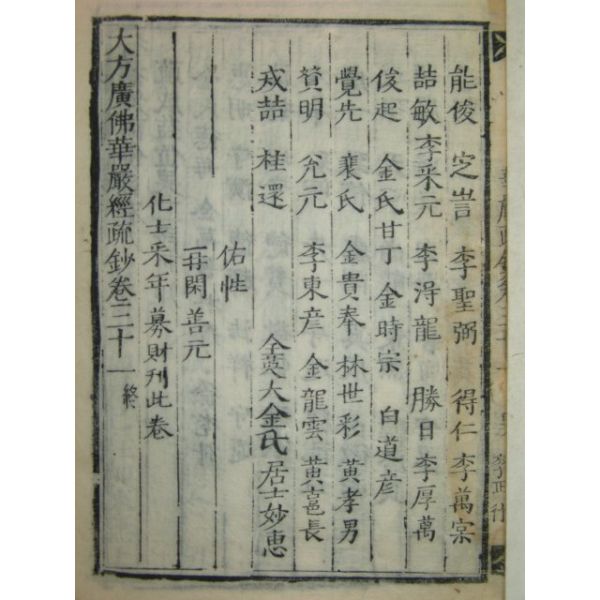 能俊 㝎訔 李聖弼 得仁 李萬宗
喆敏 李釆元 李淂龍 勝日 李厚萬
俊起 金氏甘丁 金時宗 白道彦
覺先 裵氏 金貴奉 林世彩 黃孝男
贊明 允元 李東彦 金龍雲 黃億長
戒喆 桂還 金英大 金氏 居士妙惠
佑性
再閑 善元
化士釆年募財刊此卷
大方廣佛華嚴經疏鈔卷三十一 終